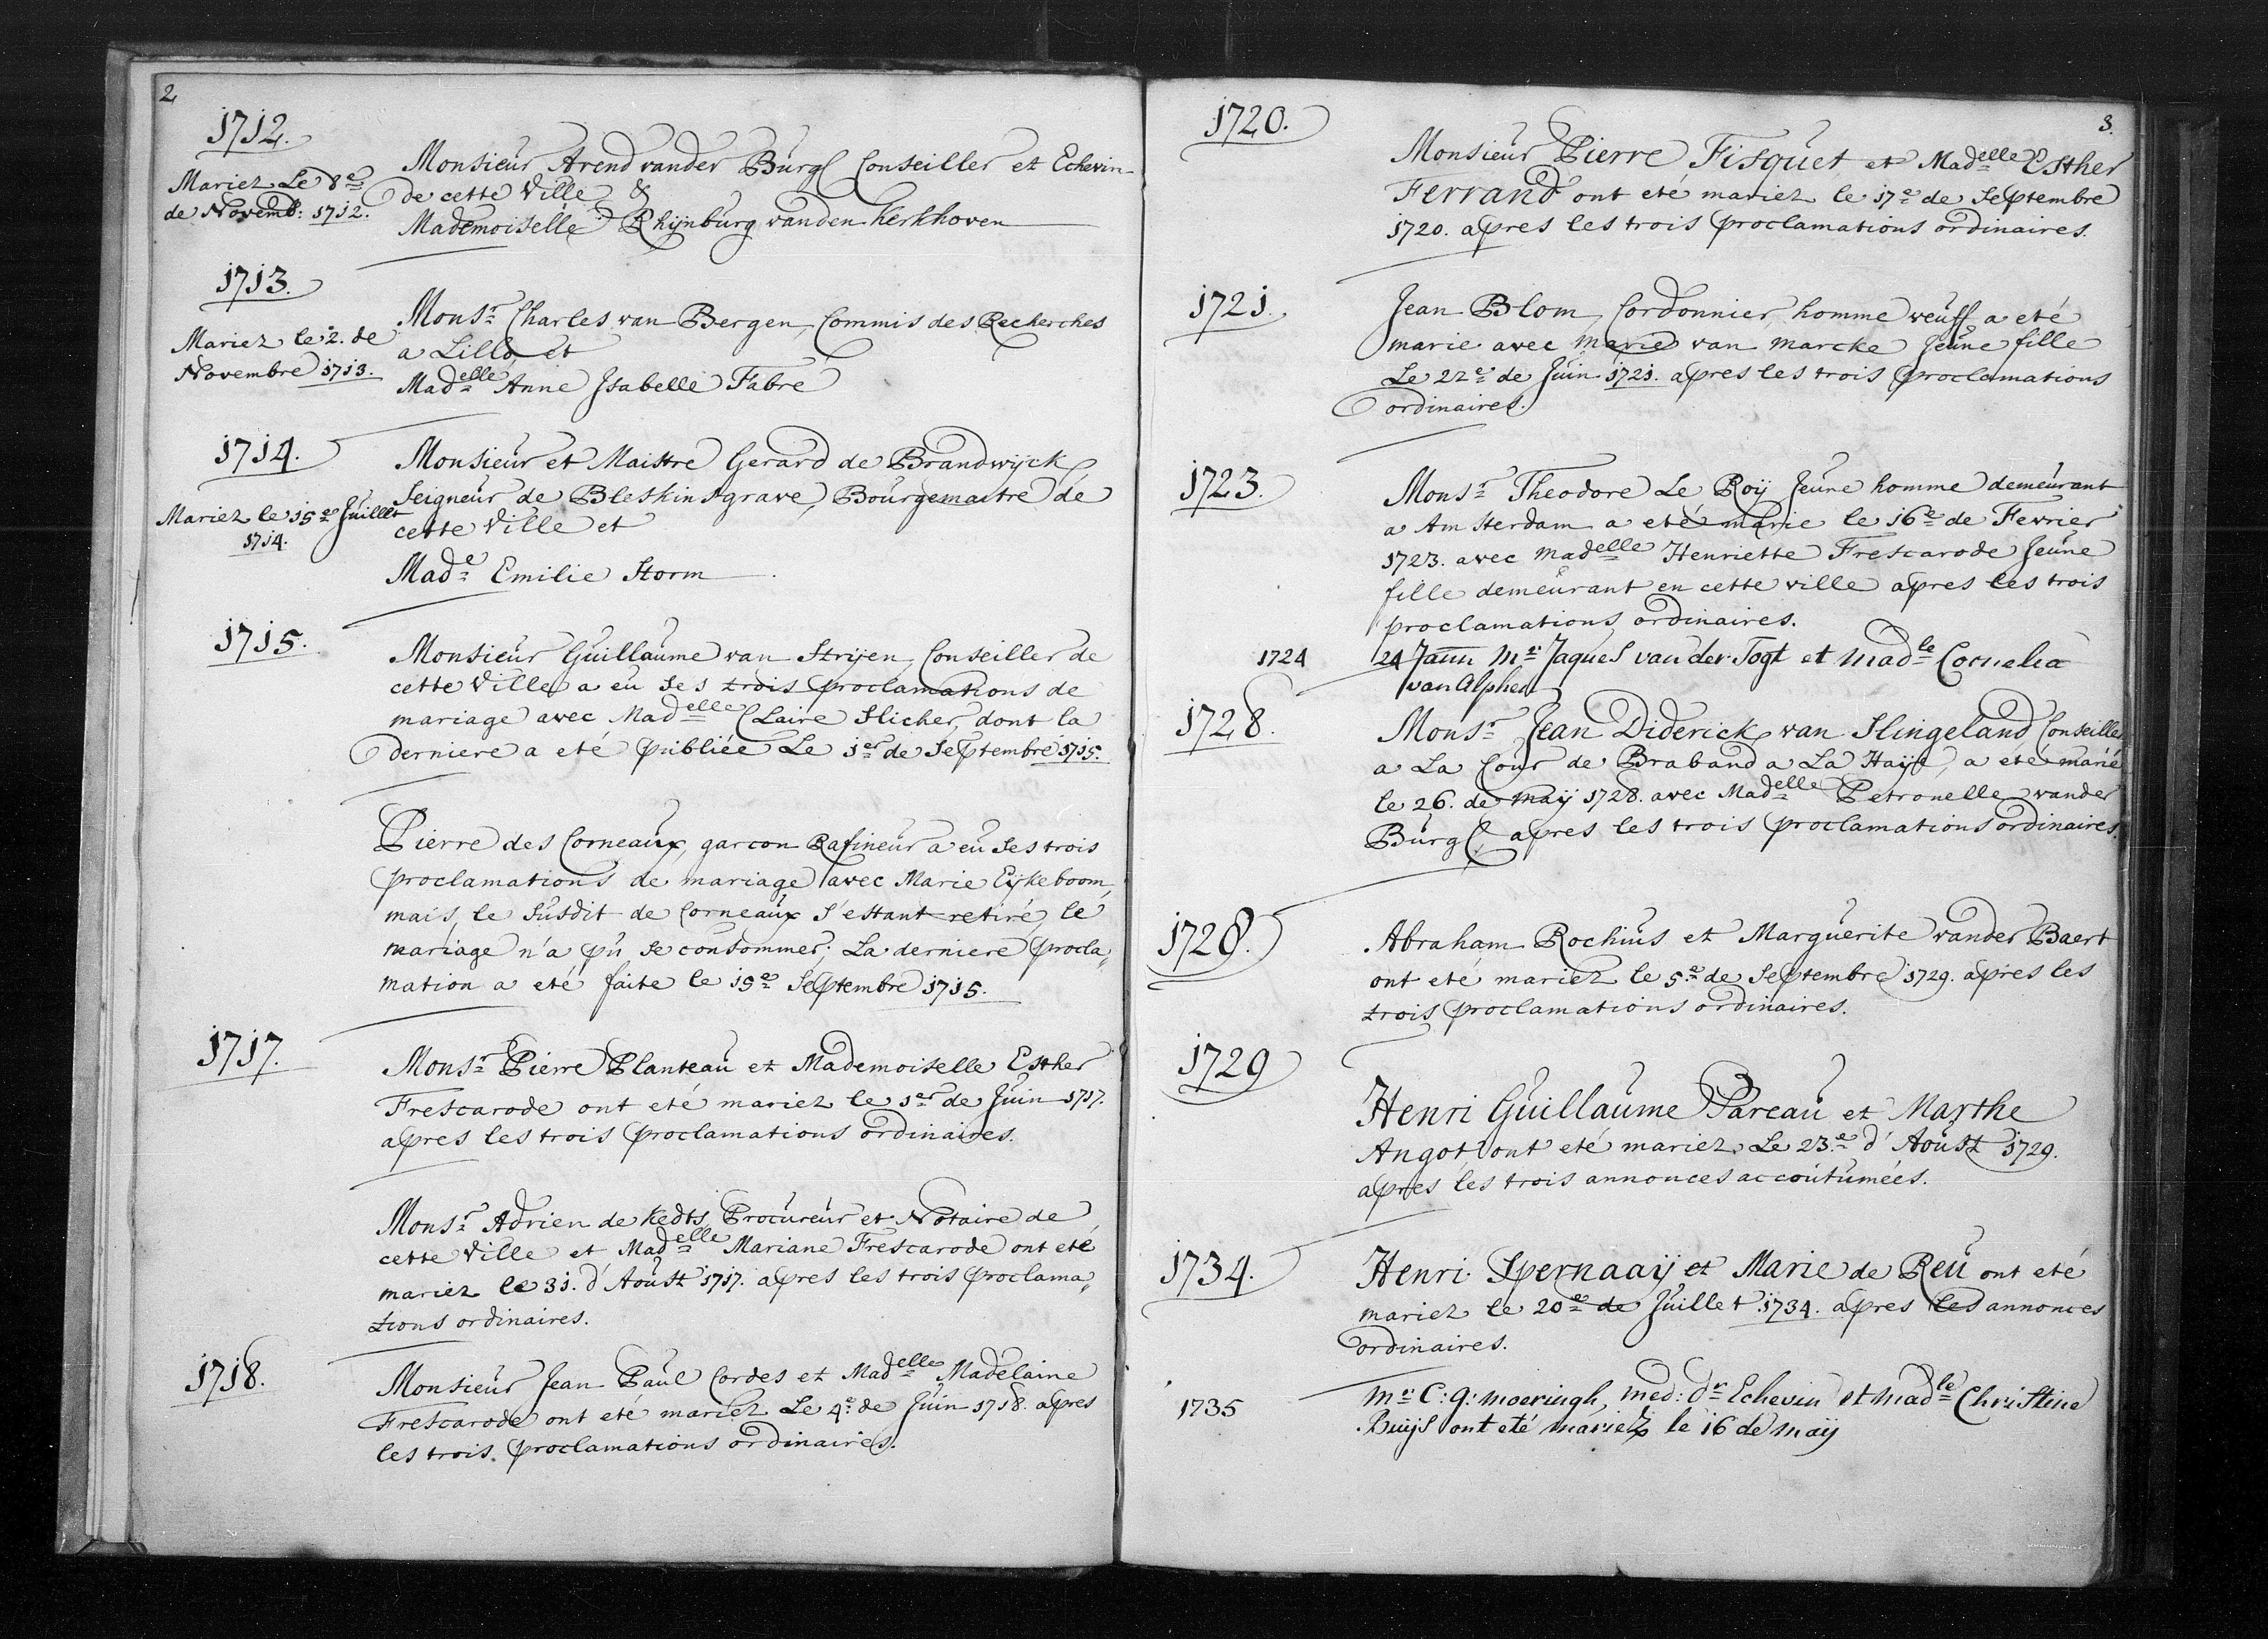 2
1712.
Mariez Le 8e
de Novemb: 1712.
Monsieur Arend vander Burg Conseiller et Echevin
de cette Ville &
Mademoiselle Rhijnburg vanden Kerkhoven
1713.
Mariez le 2. de
Novembre 1713.
Monsr Charles van Bergen, Commis des Recherches
a Lillo, et
Madelle Anne Isabelle Fabre
1714.
Mariez le 15e Juillet
1714.
Monsieur et Maistre Gerard de Brandwijck
Seigneur de Bleskinsgrave, Bourgemaitre de
cette Ville et
Made Emilie Storm
1715.
Monsieur Guillaume van Strijen, Conseiller de
cette Ville a eu ses trois proclamations de
mariage avec Madelle Claire Slicher, dont la
derniere a eté publiée Le 1er de Septembre 1715.
Pierre des Corneaux, garcon Rafineur a eu ses trois
proclamations de mariage avec Marie Eijkeboom,
mais, le susdit de Corneaux s'estant retiré, le
mariage n'a pu se consommer; La derniere procla„
mation a eté faite le 15e Septembre 1715.
1717.
Monsr Pierre Planteau et Mademoiselle Esther
Frescarode ont eté mariez le 1er de Juin 1717.
apres les trois proclamations ordinaires.
Monsr Adrien de Kedts, Procureur et Notaire de
cette Ville et Madelle Mariane Frescarode ont eté
mariez le 31. d'Aoust 1717. apres les trois proclama„
tions ordinaires.
1718.
Monsieur Jean Paul Cordes et Madelle Madelaine
Frescarode ont eté mariez Le 4e de Juin 1718. apres
les trois proclamations ordinaires.
3.
1720.
Monsieur Pierre Fisquet et Madelle Esther
Ferrand ont eté mariez le 17e de Septembre
1720. apres les trois proclamations ordinaires.
1721.
Jean Blom, Cordonnier homme veuff a eté
marie avec Marie van Marcke Jeune fille
Le 22e de Juin 1721. apres les trois proclamations
ordinaires.
1723.
Monsr Theodore Le Roij Jeune homme demeurant
a Amsterdam a eté marie le 16e de Fevrier
1723. avec Madelle Henriette Frescarode Jeune
fille demeurant en cette ville apres les trois
proclamations ordinaires.
1724
24 Jann Mr Jaques van der Togt et Madle Cornelia
van Alphen
1728.
Monsr Jean Diderick van Slingeland Conseiller
a La Cour de Braband a La Haije, a eté marié
le 26. de Maij 1728. avec Madelle Petronelle vander
Burg, apres les trois proclamations ordinaires.
1728.
Abraham Rochius et Marguerite vander Baert
ont eté mariez le 5e de Septembre 1729. apres les
trois proclamations ordinaires.
1729
Henri Guillaume Pareau et Marthe
Angot ont eté mariez Le 23e d'Aoust 1729.
apres les trois annonces accoutumées.
1734.
Henri Spernaaij et Marie de Reu ont eté
mariez le 20e de Juillet 1734. apres les annonces
ordinaires.
1735
Mr C: G: Moeringh, med: dr Echevin et Madle Christine
Buijs ont eté mariez le 16 de Maij